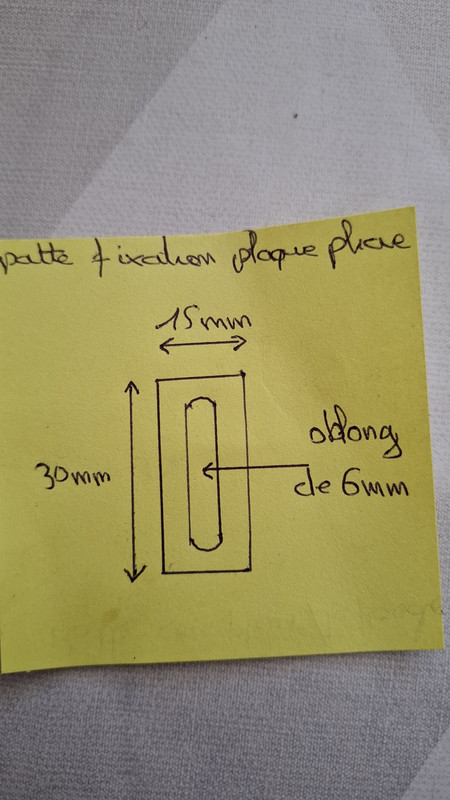 patte fixation plaque phare
15mm
30mm
oblong
de 6mm